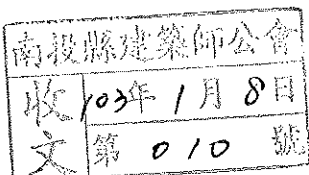 南投縣建築師公會
收文
103年1月8日
第010號